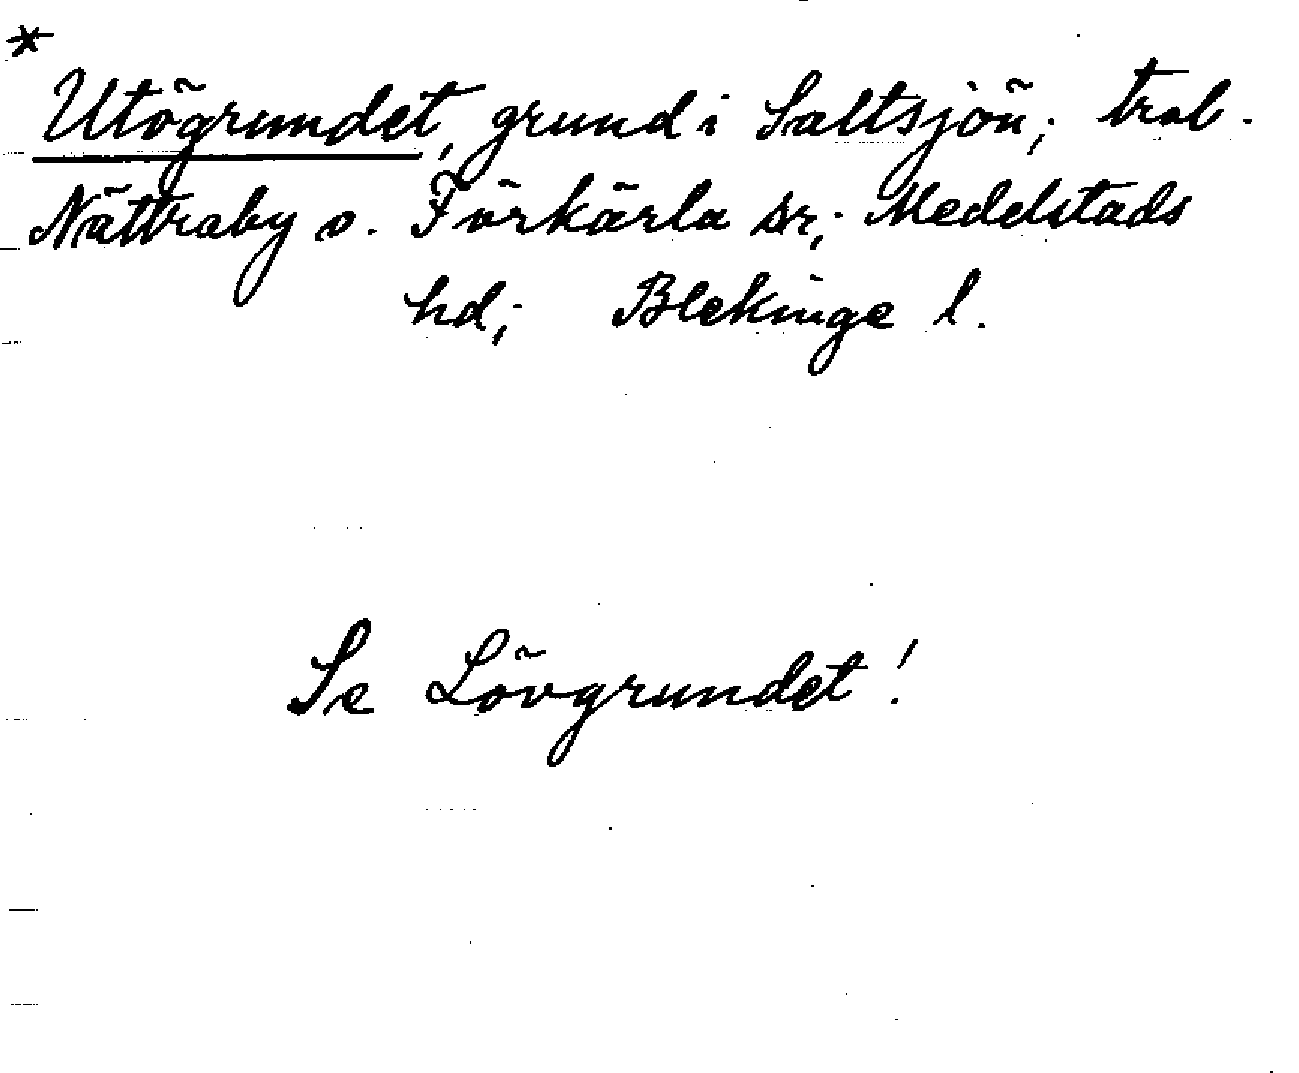 *
Utögrundet, grund i Saltsjön; trol.
Nättraby o. Förkärla sr; Medelstads
hd; Blekinge l.
Se Lövgrundet!